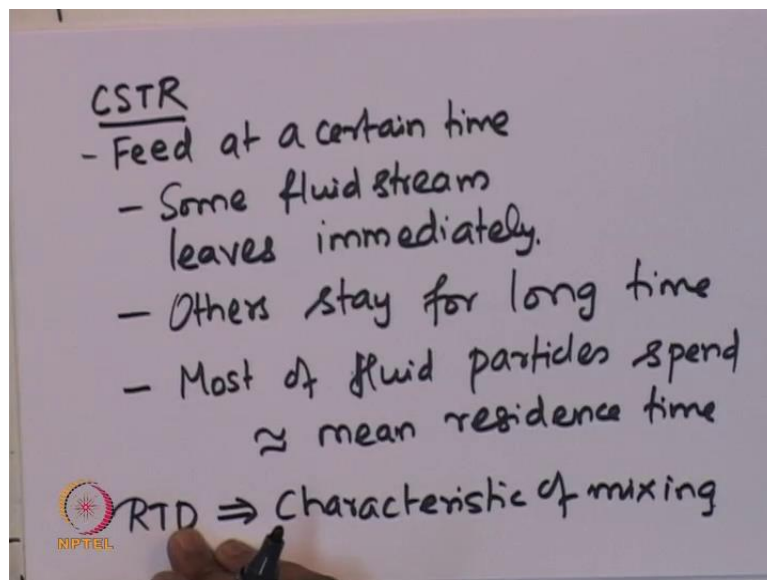 CSTR
- Feed at a certain time
- Some fluid stream
leaves immediately.
- Others stay for long time
- Most of fluid particles spend
≈ mean residence time
RTD ⇒ Characteristic of mixing
NPTEL